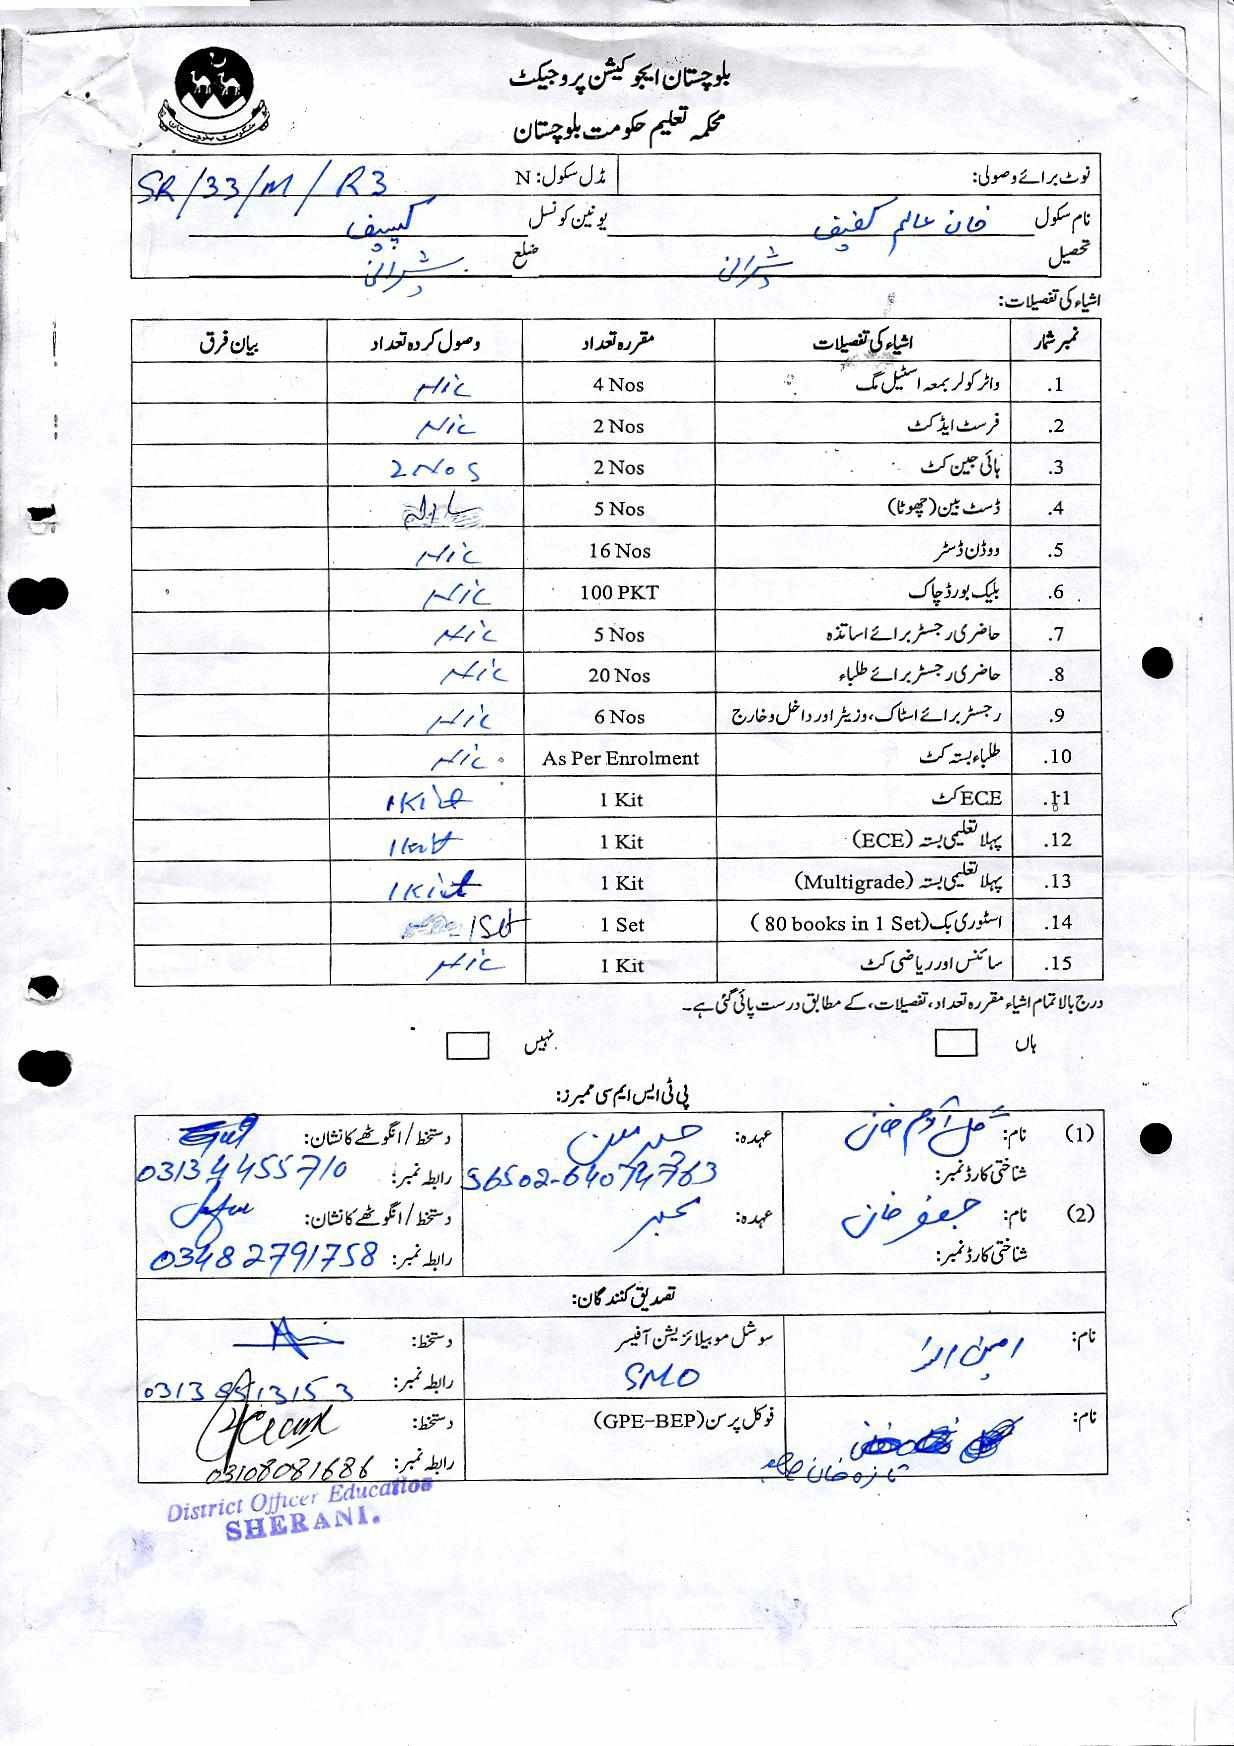 بلوچستان ایجوکیشن پروجیکٹ
محکمہ تعلیم حکومت بلوچستان
نوٹ برائے وصولی: مڈل سکول: N SR/33/M/R3
نام سکول خان عالم کفیف یونین کونسل کپیف
تحصیل شرانی ضلع شرانی
اشیاء کی تفصیلات:
نمبر شمار اشیاء کی تفصیلات مقررہ تعداد وصول کردہ تعداد بیان فرق
1. واٹر کولر بمعہ اسٹیل مگ 4 Nos Nil
2. فرسٹ ایڈ کٹ 2 Nos Nil
3. ہائی جین کٹ 2 Nos 2 Nos
4. ڈسٹ بین (چھوٹا) 5 Nos
5. ووڈن ڈسٹر 16 Nos Nil
6. بلیک بورڈ چاک 100 PKT Nil
7. حاضری رجسٹر برائے اساتذہ 5 Nos Nil
8. حاضری رجسٹر برائے طلباء 20 Nos Nil
9. رجسٹر برائے اسٹاک، وزیٹر اور داخل وخارج 6 Nos Nil
10. طلباء بستہ کٹ As Per Enrolment Nil
11. ECE کٹ 1 Kit 1 Kit
12. پہلا تعلیمی بستہ (ECE) 1 Kit 1 Kit
13. پہلا تعلیمی بستہ (Multigrade) 1 Kit 1 Kit
14. اسٹوری بک (80 books in 1 Set) 1 Set 1 Set
15. سائنس اور ریاضی کٹ 1 Kit Nil
درج بالا تمام اشیاء مقررہ تعداد، تفصیلات، کے مطابق درست پائی گئی ہے۔
ہاں نہیں
پی ٹی ایس ایم سی ممبرز:
(1) نام: گل آدم خان عہدہ: چیرمین دستخط / انگوٹھے کا نشان: Gul
شناختی کارڈ نمبر: 56502-64074763 رابطہ نمبر: 03134455710
(2) نام: جعفر خان عہدہ: ممبر دستخط / انگوٹھے کا نشان: Jafar
شناختی کارڈ نمبر: رابطہ نمبر: 03482791758
تصدیق کنندگان:
نام: امین اللہ سوشل موبیلائزیشن آفیسر دستخط:
SMO رابطہ نمبر:
نام: فوکل پرسن (GPE-BEP) دستخط:
خان رابطہ نمبر: 03108081686
District Officer Education
SHERANI.